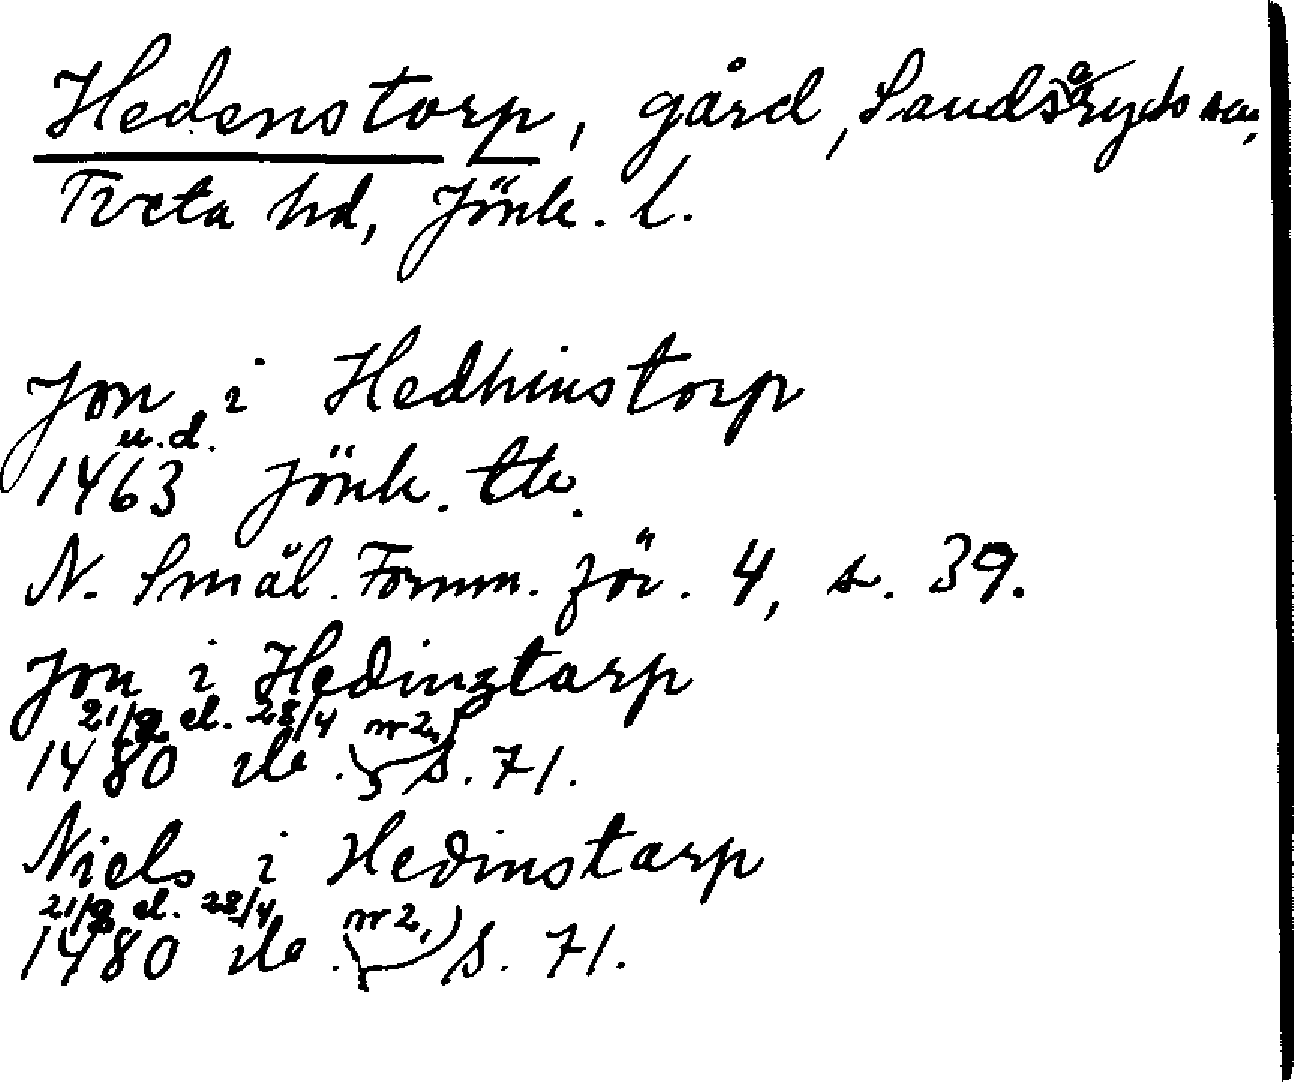 Hedenstorp, gård, Sandseryds sn,
Tveta hd, Jönk. l.
Jon i Hedhinstorp
u.d.
1463 Jönk. tb.
N. Smål. Fornm. för. 4, s. 39.
Jon i Hedinztarp
21/2 el. 28/4
1480 ib. nr 2, s. 71.
Niels i Hedinstarp
21/2 el. 28/4
1480 ib. nr 2, s. 71.